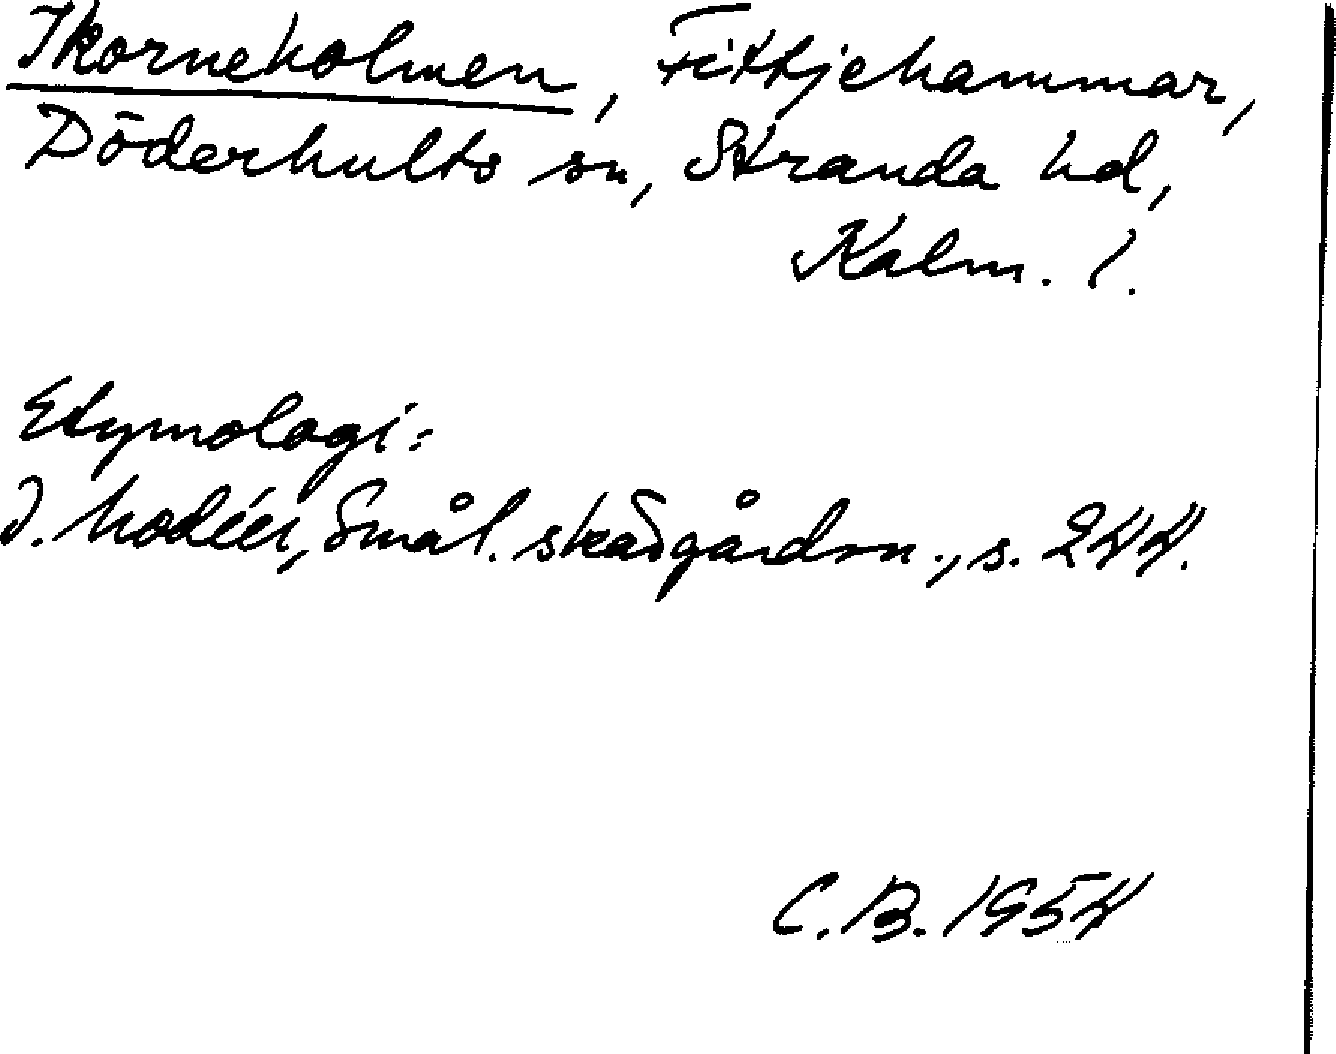 Ikorneholmen, Fittjehammar,
Döderhults sn, Stranda hd,
Kalm. l.
Etymologi:
I. Modéer, Smål. skärgårdsn., s. 244.
C. B. 1954